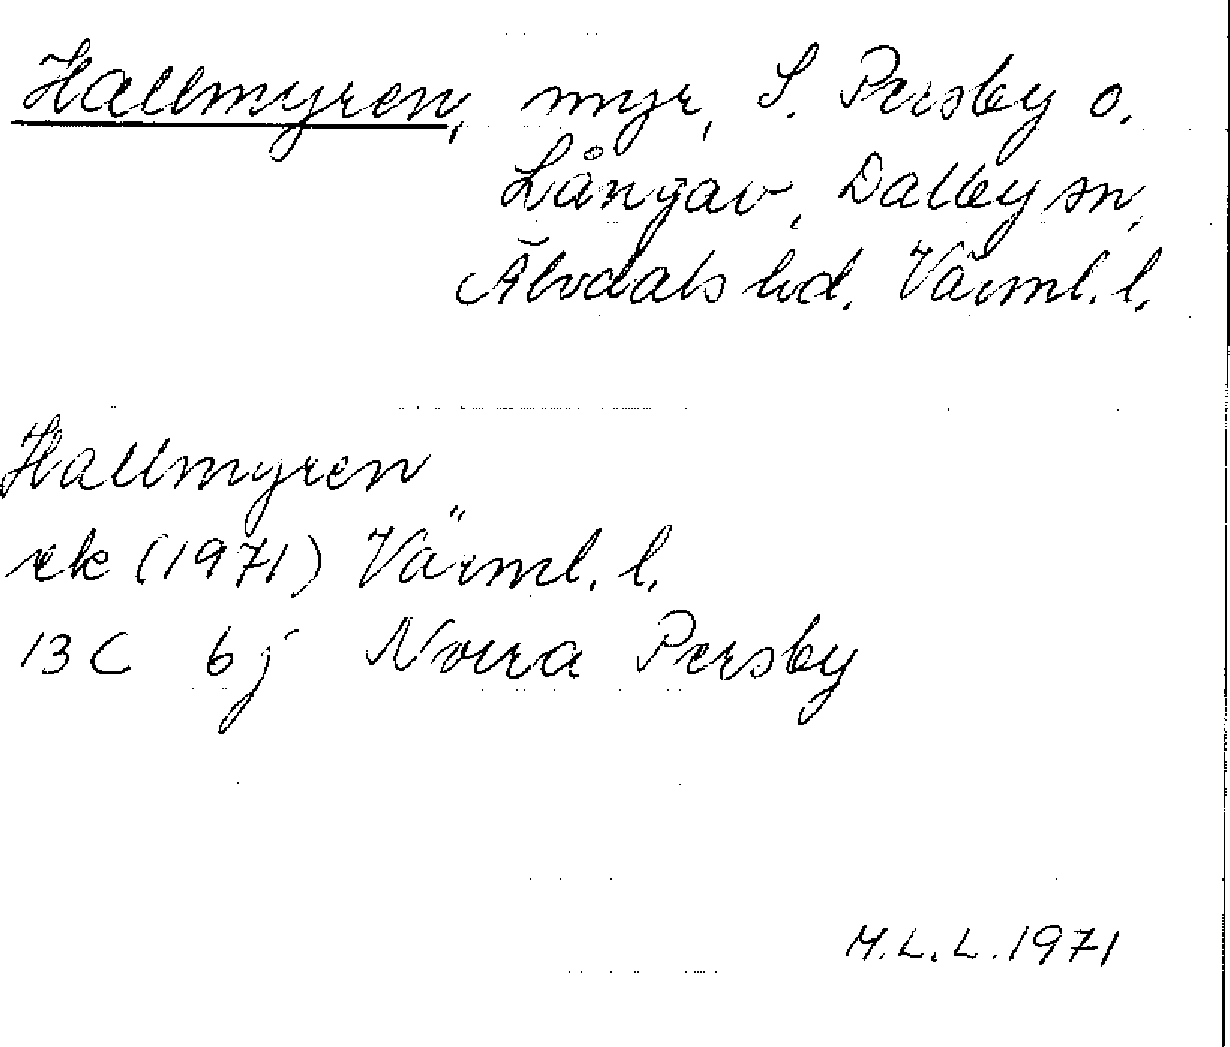 Hallmyren, myr, S. Persby o.
Långav, Dalby sn,
Älvdals hd. Värml. l.
Hallmyren
rek (1971) Värml. l.
13 C 6 j Norra Persby
M.L.L. 1971